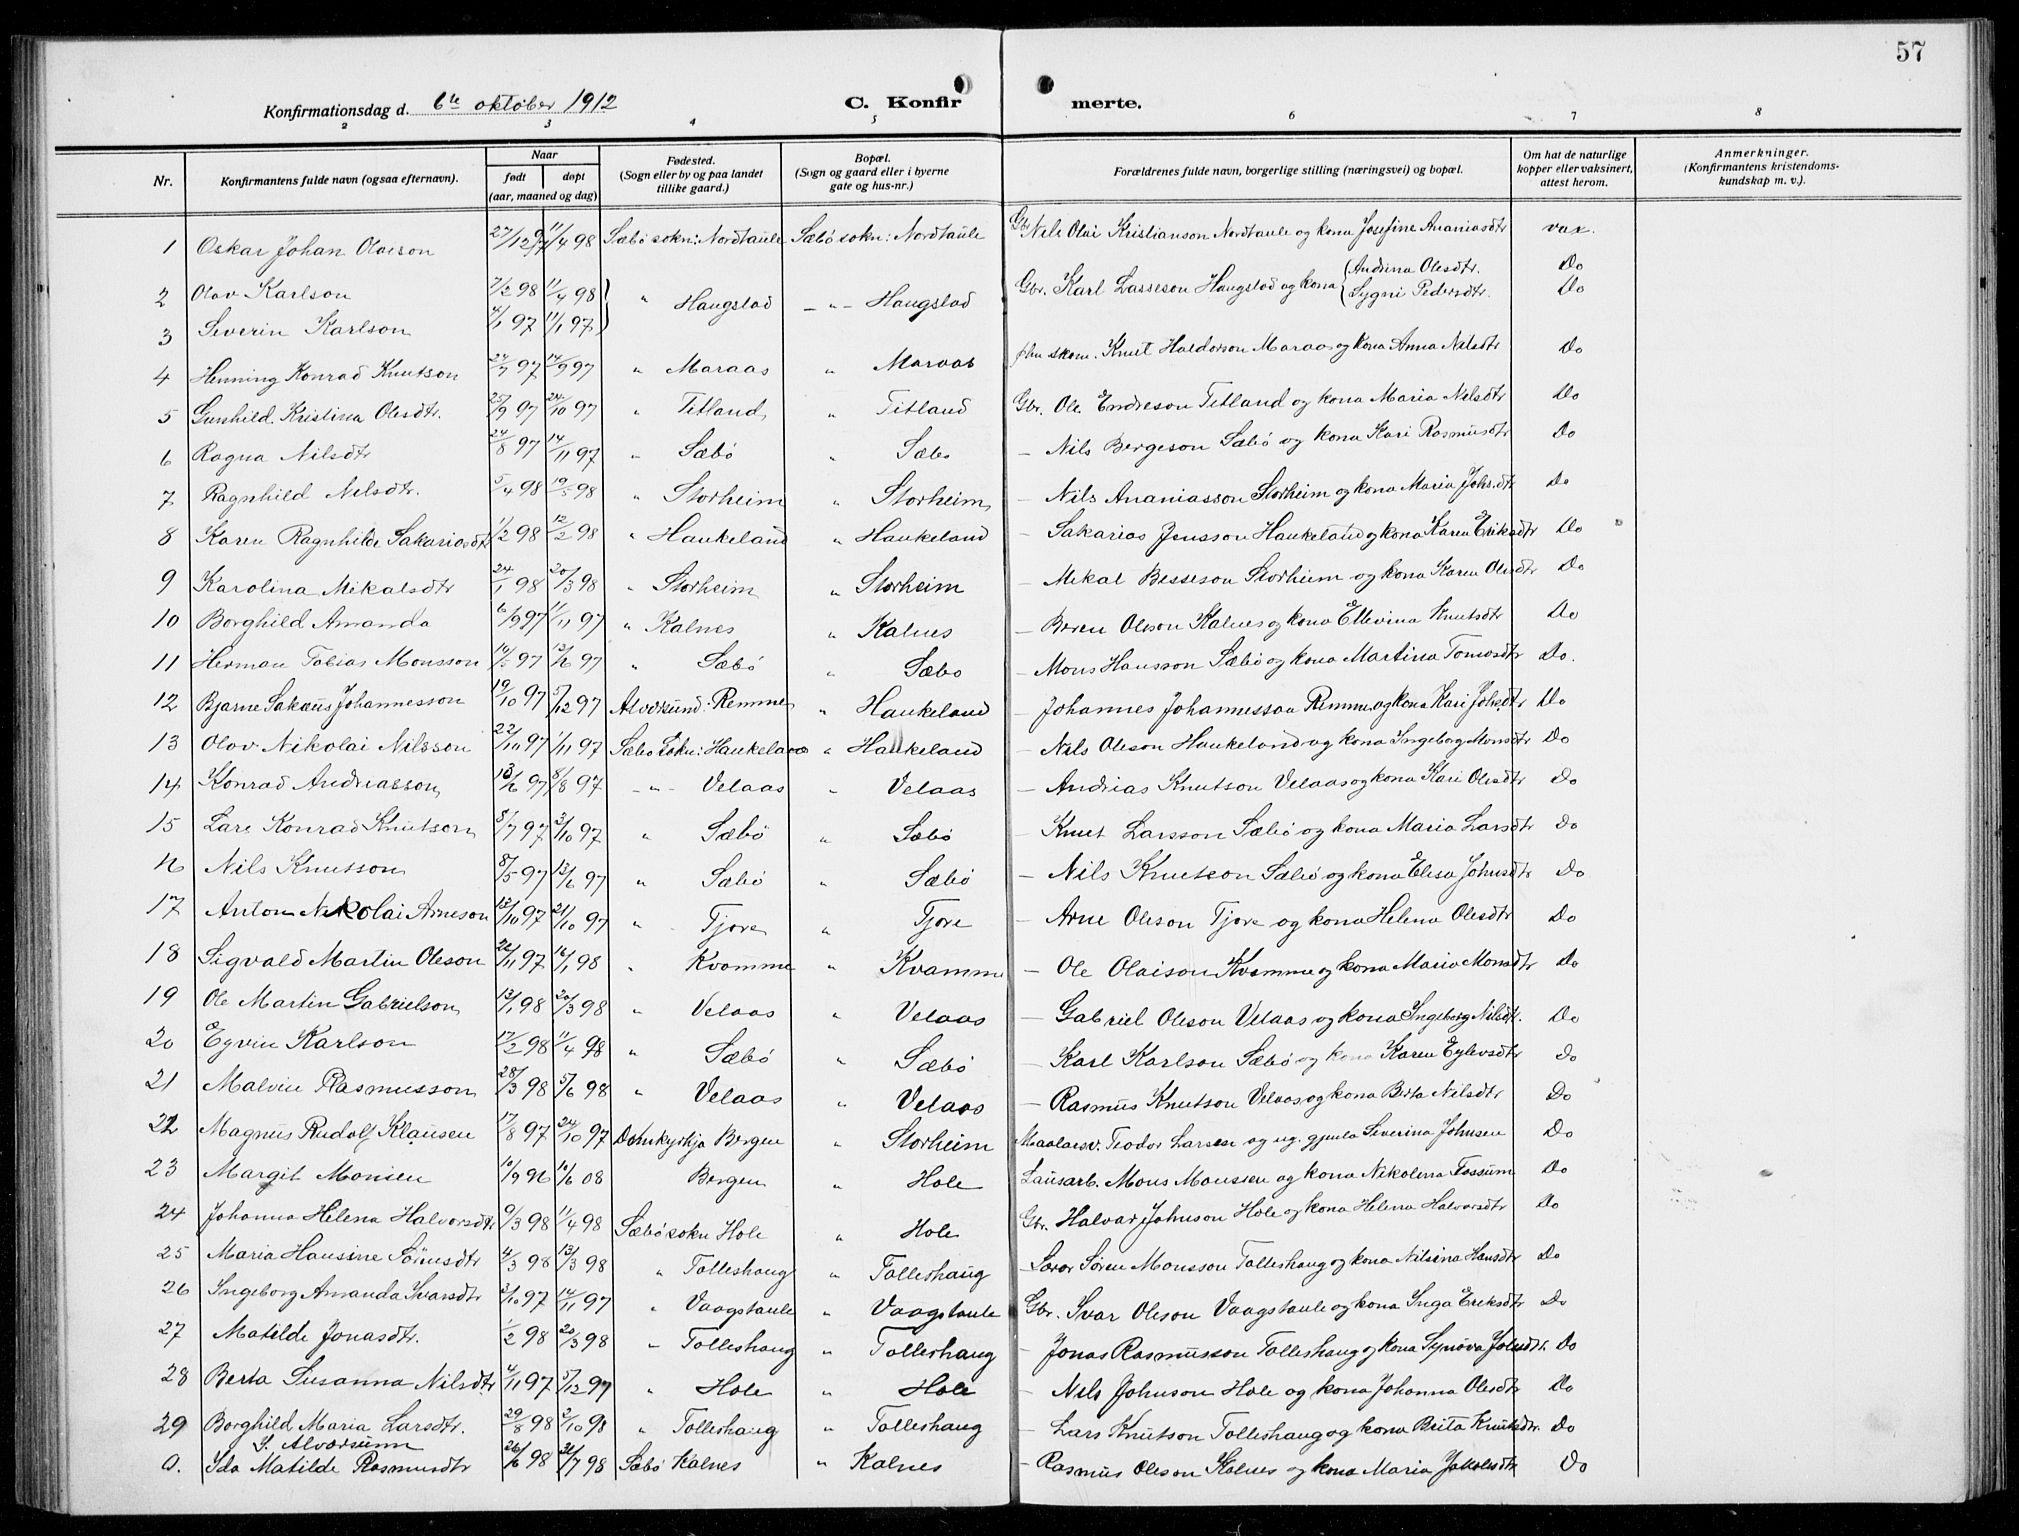 57
Konfirmationsdag d. 6te oktober 1912
C. Konfir
merte.
2 3 4 5 6 7 8
Nr.
Konfirmantens fulde navn (ogsaa efternavn).
Naar
født døpt
(aar, maaned og dag)
Fødested.
(Sogn eller by og paa landet
tillike gaard.)
Bopæl.
(Sogn og gaard eller i byerne
gate og hus-nr.)
Forældrenes fulde navn, borgerlige stilling (næringsvei) og bopæl.
Om hat de naturlige
kopper eller vaksinert,
attest herom.
Anmerkninger.
(Konfirmantens kristendoms-
kundskap m. v.).
1 Oskar Johan Olaison 27/12 97 11/4 98 Sæbø sokn: Nordtaule Sæbø sokn: Nordtaule Gbr. Nils Olai Kristianson Nordtaule og kona Josefine Ananiasdtr vax.
2 Olav Karlson 7/2 98 11/4 98 " Haugstad - " - Haugstad Gbr. Karl Lasseson Haugstad og kona Andrina Olesdtr. Do
3 Severin Karlson 4/1 97 11/1 97 Sygni Pedersdtr. Do
4 Henning Konrad Knutson 24/7 97 14/9 97 " Maraas " Maraas skom. Knut Haldorson Maraas og kona Anna Nilsdtr Do
5 Gunhild Kristina Olesdtr. 25/9 97 24/10 97 " Titland " Titland Gbr. Ole Endreson Titland og kona Maria Nilsdtr Do
6 Ragna Nilsdtr 24/8 97 14/11 97 " Sæbø " Sæbø - Nils Bergeson Sæbø og kona Kari Rasmusdtr Do
7 Ragnhild Nilsdtr. 5/4 98 19/5 98 " Storheim " Storheim - Nils Ananiasson Storheim og kona Maria Johs.dtr Do
8 Karen Ragnhilde Sakariasdtr 1/2 98 12/2 98 " Haukeland " Haukeland - Sakarias Jensson Haukeland og kona Karen Eriksdtr Do
9 Karolina Mikalsdtr 24/1 98 20/3 98 " Storheim " Storheim - Mikal Besseson Storheim og kona Karen Olesdtr Do
10 Borghild Amanda 6/9 97 11/11 97 " Kalnes " Kalnes - Oleson Kalnes og kona Ellevina Knutsdtr Do
11 Herman Tobias Monsson 14/5 97 13/6 97 " Sæbø " Sæbø - Mons Hansson Sæbø og kona Martina Tomasdtr Do.
12 Bjarne Sakæus Johannesson 19/10 97 5/12 97 Alversund: Remme " Haukeland - Johannes Johannesson Remme og kona Kari Johs.dtr Do
13 Olav Nikolai Nilsson 22/10 97 1/11 97 Sæbø Sokn: Haukeland " Haukeland - Nils Oleson Haukeland og kona Ingeborg Monsdtr Do
14 Konrad Andreasson 13/6 97 8/8 97 - " - Velaas " Velaas - Andreas Knutson Velaas og kona Kari Olesdtr Do
15 Lars Konrad Knutson 8/7 97 3/10 97 " Sæbø " Sæbø - Knut Larsson Sæbø og kona Maria Larsdtr Do
16 Nils Knutson 8/5 97 13/6 97 " Sæbø " Sæbø - Nils Knutson Sæbø og kona Elisa Johnsdtr Do
17 Anton Nikolai Arneson 13/10 97 21/10 97 " Tjore " Tjore - Arne Oleson Tjore og kona Helena Olesdtr Do
18 Sigvald Martin Oleson 26/11 97 16/1 98 " Kvamme " Kvamme - Ole Olaison Kvamme og kona Maria Monsdtr Do
19 Ole Martin Gabrielson 13/1 98 20/3 98 " Velaas " Velaas - Gabriel Oleson Velaas og kona Ingeborg Nilsdtr. Do
20 Eyvin Karlson 17/2 98 11/4 98 " Sæbø " Sæbø - Karl Karlson Sæbø og kona Karen Eylevsdtr Do
21 Malvin Rasmusson 28/3 98 5/6 98 " Velaas " Velaas - Rasmus Knutson Velaas og kona Berta Nilsdtr Do
22 Magnus Rudolf Klausen 17/8 97 24/10 97 Domkyrkja Bergen " Storheim Teodor Larsen og ug. gjenta Severina Johnsen Do
23 Margit Monsen 10/9 96 10/6 08 Bergen " Hole Lausarb. Mons Monssen og kona Nikolina Fossum Do
24 Johanna Helena Halvorsdtr 9/3 98 11/4 98 Sæbø sokn Hole " Hole Gbr. Halvar Johnson Hole og kona Helena Halvorsdtr Do
25 Maria Hansine Sörensdtr 4/3 98 13/3 98 " Tolleshaug " Tolleshaug - Sören Monsson Tolleshaug og kona Nilsina Hansdtr Do
26 Ingeborg Amanda Ivarsdtr 3/10 97 14/11 97 " Vaagstaule " Vaagstaule Gbr. Ivar Oleson Vaagstaule og kona Inga Eriksdtr Do
27 Matilde Jonasdtr. 1/2 98 20/3 98 " Tolleshaug " Tolleshaug - Jonas Rasmusson Tolleshaug og kona Synøva Johsdtr. Do
28 Berta Susanna Nilsdtr 4/11 97 5/12 97 " Hole " Hole - Nils Johnson Hole og kona Johanna Olesdtr Do
29 Borghild Maria Larsdtr. 29/8 98 2/10 98 " Tolleshaug " Tolleshaug - Lars Knutson Tolleshaug og kona Brita Knutsdtr. Do
I. Alversunn
a. Ida Matilde Rasmusdtr 26/6 98 31/7 98 Sæbø Kalnes " Kalnes - Rasmus Oleson Kalnes og kona Maria Jakobsdtr Do